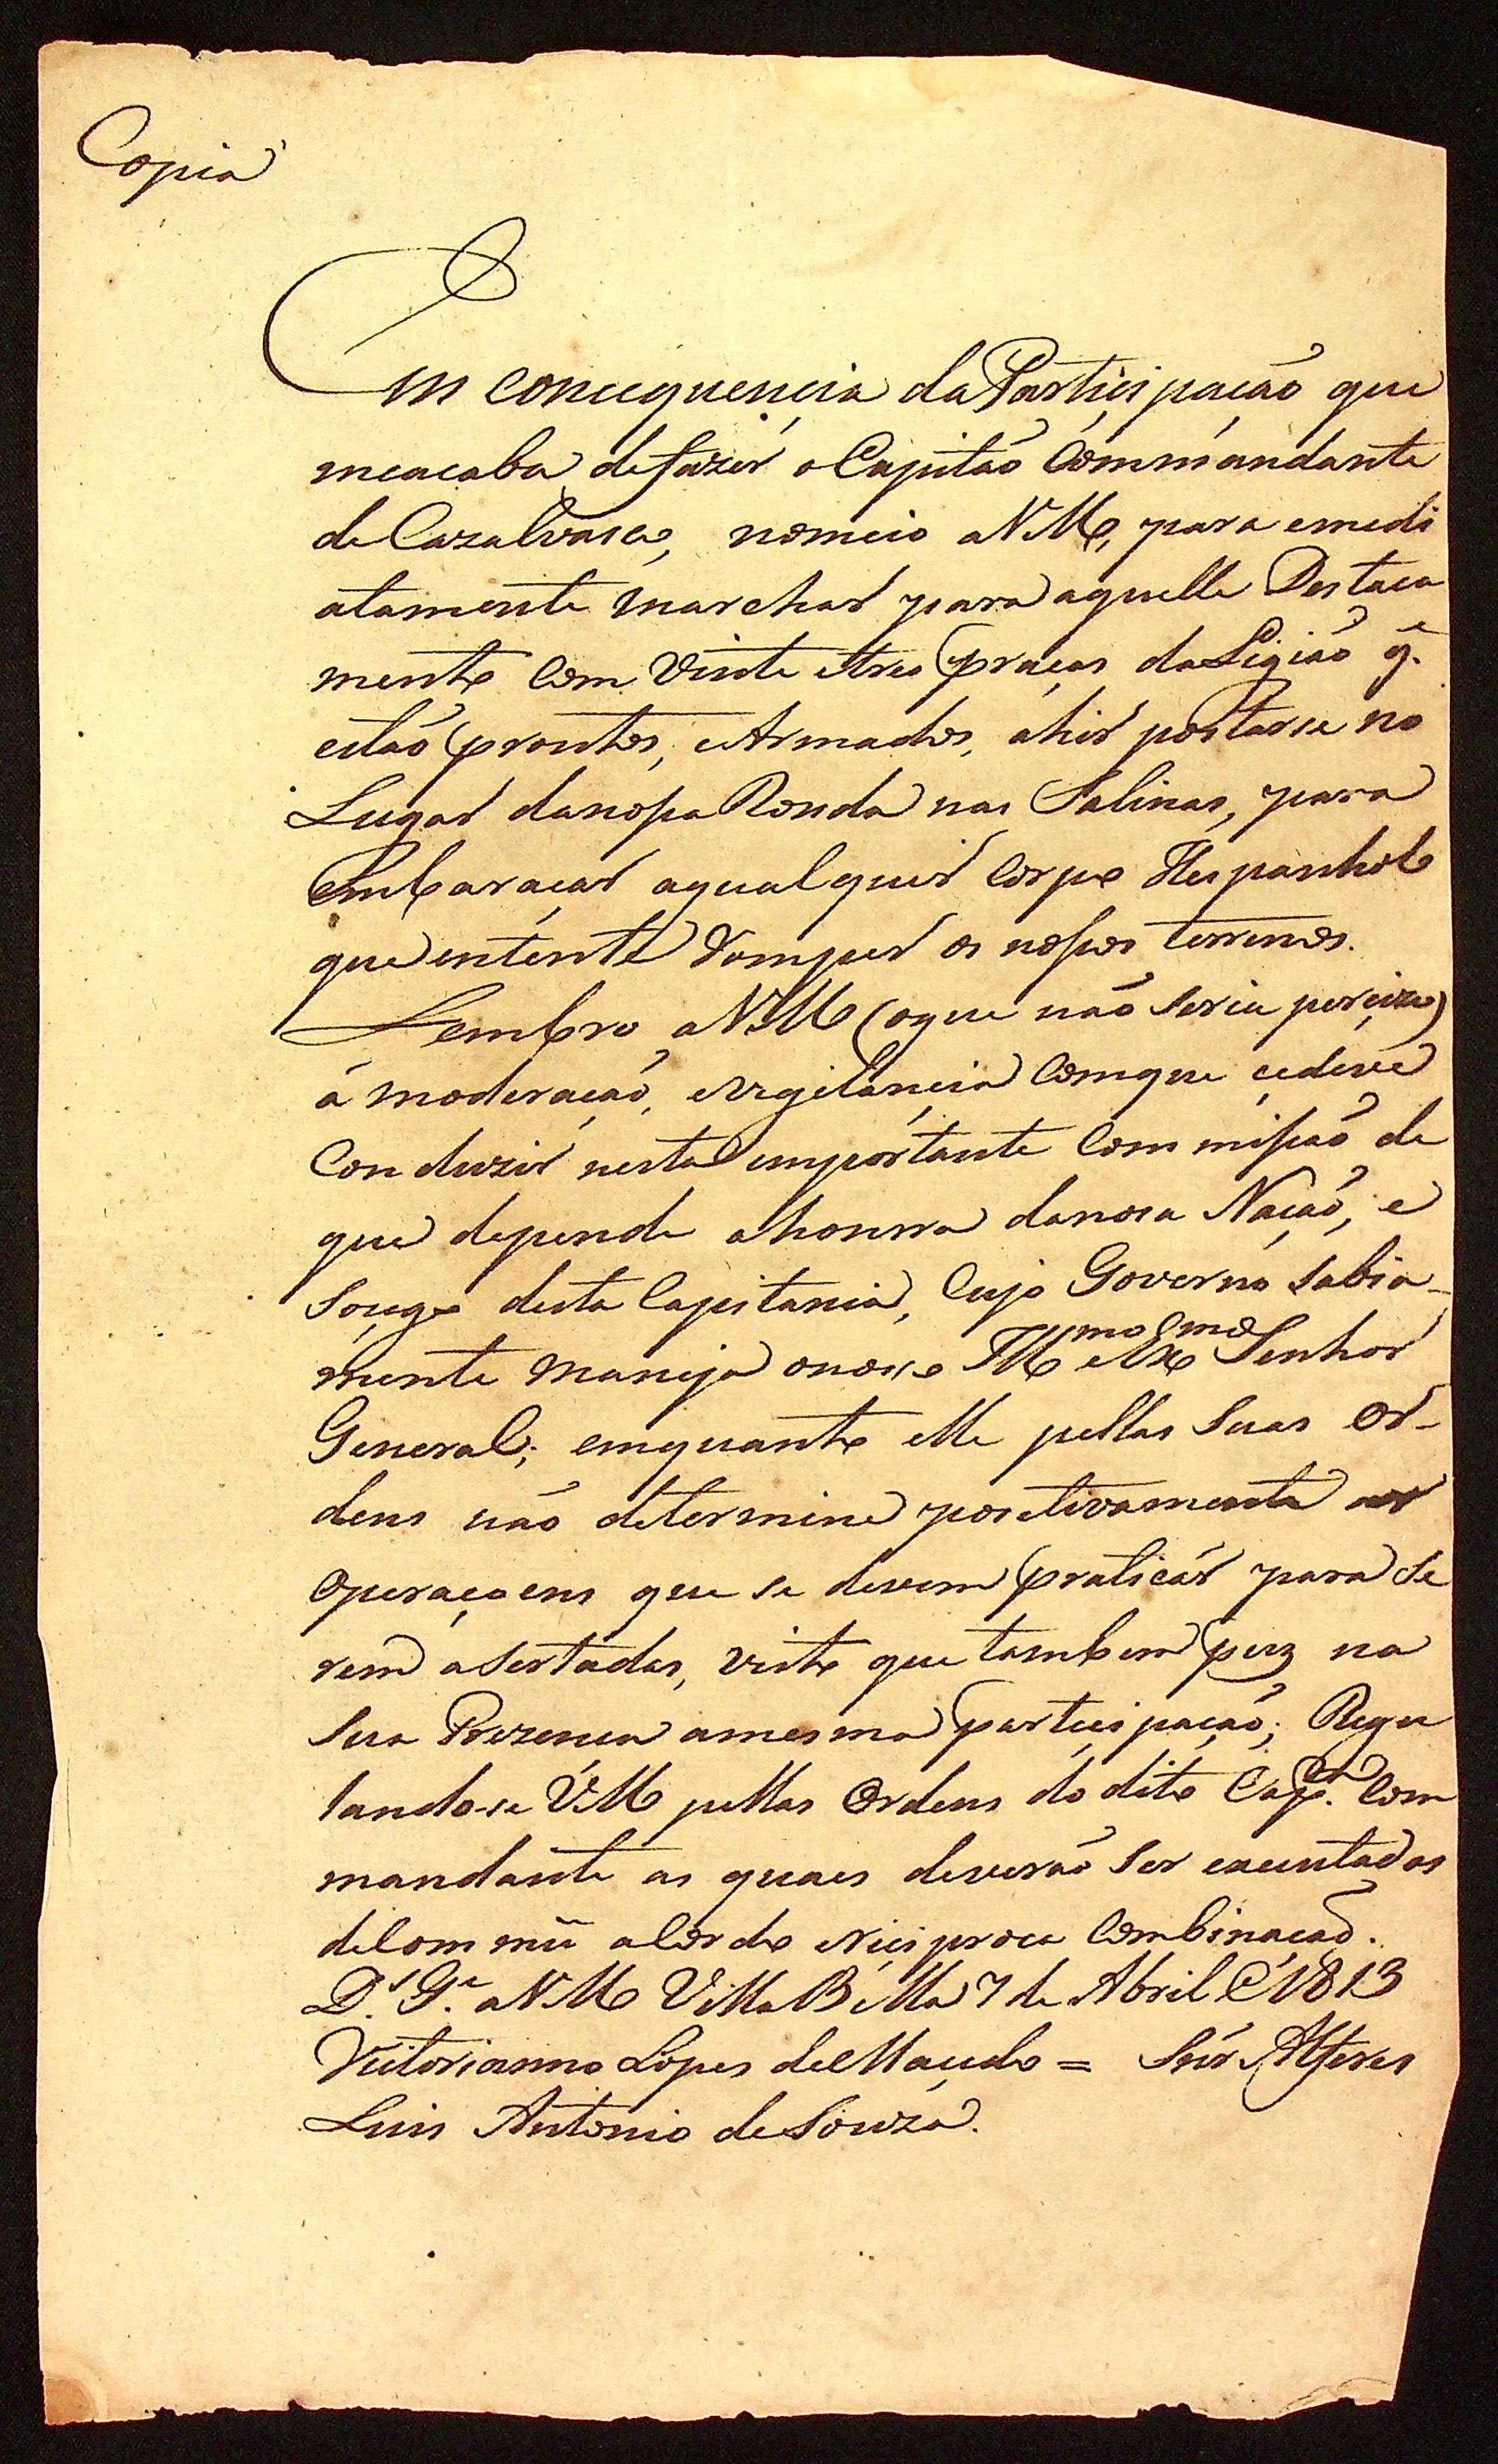 Copia
Em concequencia da Participação que
meacaba defazer o Capitão Commandante
de Cazalvasco, nomeio aVM, para emedi
atamente marchar para aquelle Destaca
mento Com Vinte etres praças da Legião q.e
estão promtos, eArmados, ahir postarse no
Lugar danossa Ronda nas Salinas, para
Embaraçar aqualquer Corpo Hespanhol
que entente romper os nossos terrenos.
Lembro aVM (oque não seria percizo)
á moderação, eVegilancia Comque çedeve
Conduzir nesta importante Commissão de
que depende ahonrra danosa Nação, e
Soçego desta Capitania, Cujo Governo Sabia-
mente maneja onoso Ill.mo eEx.mo Senhor
General; emquanto elle pellas Suas or-
dens não determine pozetivamente as
operaçoens que se devem praticar para Se
rem aSertadas, visto que tambem puz na
Sua Prezença amesma participação; Regu
landose VM pellas Ordens do dito Cap.m Com
mandante as quaes deverão Ser executadas
deCommũ aCordo eReciproca Combinação.
D.s G.e aVM Villa Bella 7 de Abril de 1813
Victorianno Lopes deMacedo = Snr Alferes
Luis Antonio deSouza.